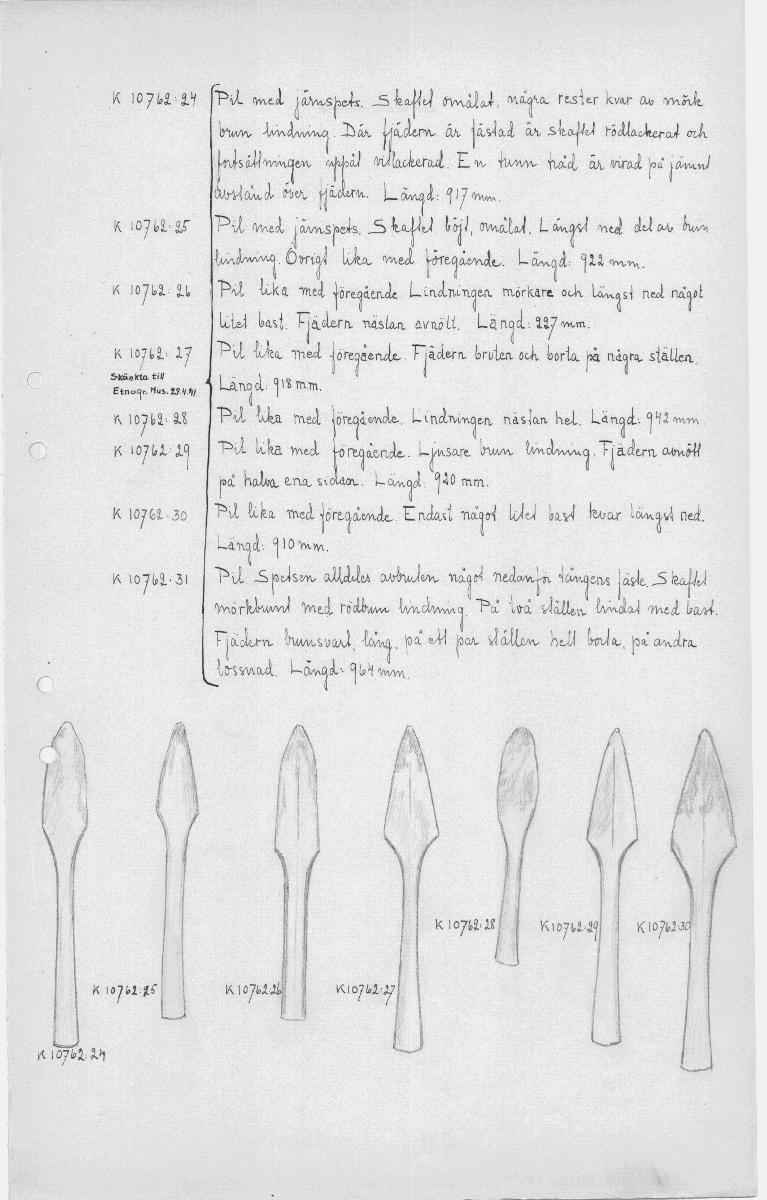 K 10762:24 Pil med järnspets. Skaftet omålat, några rester kvar av mörk
brun lindning. Där fjädern är fästad är skaftet rödlackerat och
fortsättningen uppåt vitlackerad. En tunn tråd är virad på jämnt
avstånd över fjädern. Längd: 917 mm.
K 10762:25 Pil med järnspets. Skaftet böjt, omålat. Längst ned del av brun
lindning. Övrigt lika med föregående. Längd: 922 mm.
K 10762:26 Pil lika med föregående. Lindningen mörkare och längst ned något
litet bast. Fjädern nästan avnött. Längd: 927 mm.
K 10762:27 Pil lika med föregående. Fjädern bruten och borta på några ställen.
Skänkta till
Etnogr. Mus. 29.4.41
Längd: 918 mm.
K 10762:28 Pil lika med föregående. Lindningen nästan hel. Längd: 942 mm
K 10762:29 Pil lika med föregående. Ljusare brun lindning. Fjädern avnött
på halva ena sidan. Längd: 920 mm.
K 10762:30 Pil lika med föregående. Endast något litet bast kvar längst ned.
Längd: 910 mm.
K 10762:31 Pil. Spetsen alldeles avbruten något nedanför tångens fäste. Skaftet
mörkbrunt med rödbrun lindning. På två ställen lindat med bast.
Fjädern brunsvart, lång, på ett par ställen helt borta, på andra
lossnad. Längd: 964 mm.
K 10762:28
K 10762:29
K 10762:30
K 10762:25
K 10762:26
K 10762:27
K 10762:24